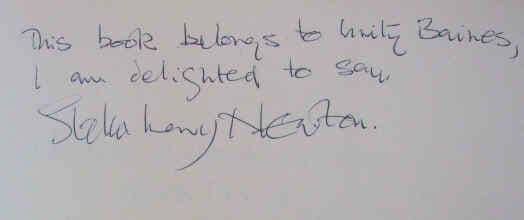 This book belongs to Unity Baines,
I am delighted to say,
Newton.